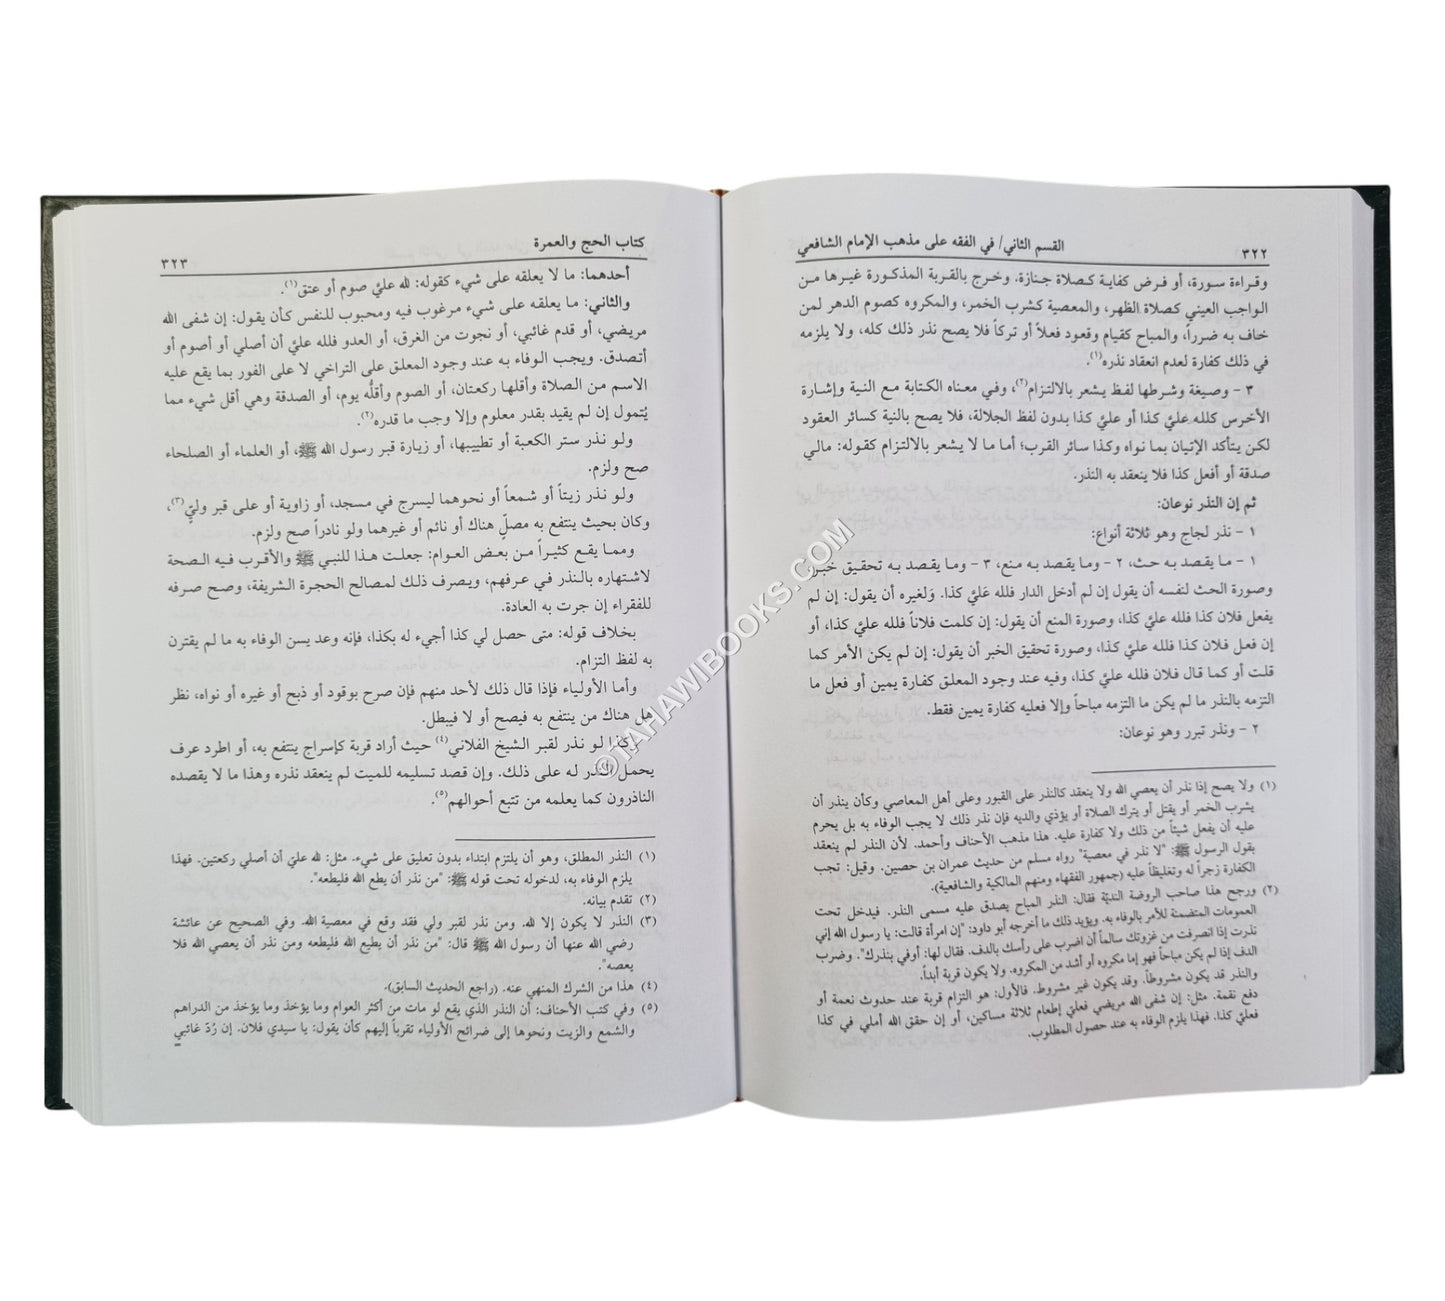 ٣٢٢
القسم الثاني/ في الفقه على مذهب الإمام الشافعي
وقراءة سورة، أو فرض كفاية كصلاة جنازة، وخرج بالقربة المذكورة غيرها من
الواجب العيني كصلاة الظهر، والمعصية كشرب الخمر، والمكروه كصوم الدهر لمن
خاف به ضرراً، والمباح كقيام وقعود فعلاً أو تركاً فلا يصح نذر ذلك كله، ولا يلزمه
في ذلك كفارة لعدم انعقاد نذره(١).
٣ - وصيغة وشرطها لفظ يشعر بالالتزام(٢)، وفي معناه الكتابة مع النية وإشارة
الأخرس كلله عليّ كذا أو عليّ كذا بدون لفظ الجلالة، فلا يصح بالنية كسائر العقود
لكن يتأكد الإتيان بما نواه وكذا سائر القرب؛ أما ما لا يشعر بالالتزام كقوله: مالي
صدقة أو أفعل كذا فلا ينعقد به النذر.
ثم إن النذر نوعان:
١ - نذر لجاج وهو ثلاثة أنواع:
١ - ما يقصد به حث، ٢ - وما يقصد به منع، ٣ - وما يقصد به تحقيق خبر،
وصورة الحث لنفسه أن يقول إن لم أدخل الدار فلله عَليّ كذا. وَلغيره أن يقول: إن لم
يفعل فلان كذا فلله عليّ كذا، وصورة المنع أن يقول: إن كلمت فلاناً فلله عليّ كذا، أو
إن فعل فلان كذا فلله عليّ كذا، وصورة تحقيق الخبر أن يقول: إن لم يكن الأمر كما
قلت أو كما قال فلان فلله عليّ كذا، وفيه عند وجود المعلق كفارة يمين أو فعل ما
التزمه بالنذر ما لم يكن ما التزمه مباحاً وإلا فعليه كفارة يمين فقط.
٢ - ونذر تبرر وهو نوعان:
(١) ولا يصح إذا نذر أن يعصي الله ولا ينعقد كالنذر على القبور وعلى أهل المعاصي وكأن ينذر أن
يشرب الخمر أو يقتل أو يترك الصلاة أو يؤذي والديه فإن نذر ذلك لا يجب الوفاء به بل يحرم
عليه أن يفعل شيئاً من ذلك ولا كفارة عليه. هذا مذهب الأحناف وأحمد. لأن النذر لم ينعقد
بقول الرسول ﷺ: "لا نذر في معصية" رواه مسلم من حديث عمران بن حصين. وقيل: تجب
الكفارة زجراً له وتغليظاً عليه (جمهور الفقهاء ومنهم المالكية والشافعية).
(٢) ورجح هذا صاحب الروضة النديّة فقال: النذر المباح يصدق عليه مسمى النذر. فيدخل تحت
العمومات المتضمنة للأمر بالوفاء به. ويؤيد ذلك ما أخرجه أبو داود: "إن امرأة قالت: يا رسول الله إني
نذرت إذا انصرفت من غزوتك سالماً أن اضرب على رأسك بالدف. فقال لها: أوفي بنذرك". وضرب
الدف إذا لم يكن مباحاً فهو إما مكروه أو أشد من المكروه. ولا يكون قربة أبداً.
والنذر قد يكون مشروطاً. وقد يكون غير مشروط. فالأول: هو التزام قربة عند حدوث نعمة أو
دفع نقمة. مثل: إن شفى الله مريضي فعليّ إطعام ثلاثة مساكين، أو إن حقق الله أملي في كذا
فعليّ كذا. فهذا يلزم الوفاء به عند حصول المطلوب.
كتاب الحج والعمرة
٣٢٣
أحدهما: ما لا يعلقه على شيء كقوله: لله عليّ صوم أو عتق(١).
والثاني: ما يعلقه على شيء مرغوب فيه ومحبوب للنفس كأن يقول: إن شفى الله
مريضي، أو قدم غائبي، أو نجوت من الغرق، أو العدو فلله عليّ أن أصلي أو أصوم أو
أتصدق. ويجب الوفاء به عند وجود المعلق على التراخي لا على الفور بما يقع عليه
الاسم من الصلاة وأقلها ركعتان، أو الصوم وأقلُّه يوم، أو الصدقة وهي أقل شيء مما
يُتمول إن لم يقيد بقدر معلوم وإلا وجب ما قدره(٢).
ولو نذر ستر الكعبة أو تطييبها، أو زيارة قبر رسول الله ﷺ، أو العلماء أو الصلحاء
صح ولزم.
ولو نذر زيتاً أو شمعاً أو نحوهما ليسرج في مسجد، أو زاوية أو على قبر وليّ(٣)،
وكان بحيث ينتفع به مصلّ هناك أو نائم أو غيرهما ولو نادراً صح ولزم.
ومما يقع كثيراً من بعض العوام: جعلت هذا للنبي ﷺ والأقرب فيه الصحة
لاشتهاره بالنذر في عرفهم، ويصرف ذلك لمصالح الحجرة الشريفة، وصح صرفه
للفقراء إن جرت به العادة.
بخلاف قوله: متى حصل لي كذا أجيء له بكذا، فإنه وعد يسن الوفاء به ما لم يقترن
به لفظ التزام.
وأما الأولياء فإذا قال ذلك لأحد منهم فإن صرح بوقود أو ذبح أو غيره أو نواه، نظر
هل هناك من ينتفع به فيصح أو لا فيبطل.
وكذا لو نذر لقبر الشيخ الفلاني(٤) حيث أراد قربة كإسراج ينتفع به، أو اطرد عرف
يحمل النذر له على ذلك. وإن قصد تسليمه للميت لم ينعقد نذره وهذا ما لا يقصده
الناذرون كما يعلمه من تتبع أحوالهم(٥).
(١) النذر المطلق، وهو أن يلتزم ابتداء بدون تعليق على شيء. مثل: لله عليّ أن أصلي ركعتين. فهذا
يلزم الوفاء به، لدخوله تحت قوله ﷺ: "من نذر أن يطع الله فليطعه".
(٢) تقدم بيانه.
(٣) النذر لا يكون إلا لله. ومن نذر لقبر ولي فقد وقع في معصية الله. وفي الصحيح عن عائشة
رضي الله عنها أن رسول الله ﷺ قال: "من نذر أن يطيع الله فليطعه ومن نذر أن يعصي الله فلا
يعصه".
(٤) هذا من الشرك المنهي عنه. (راجع الحديث السابق).
(٥) وفي كتب الأحناف: أن النذر الذي يقع لو مات من أكثر العوام وما يؤخذ وما يؤخذ من الدراهم
والشمع والزيت ونحوها إلى ضرائح الأولياء تقرباً إليهم كأن يقول: يا سيدي فلان. إن رُدّ غائبي
©TAHAWIBOOKS.COM